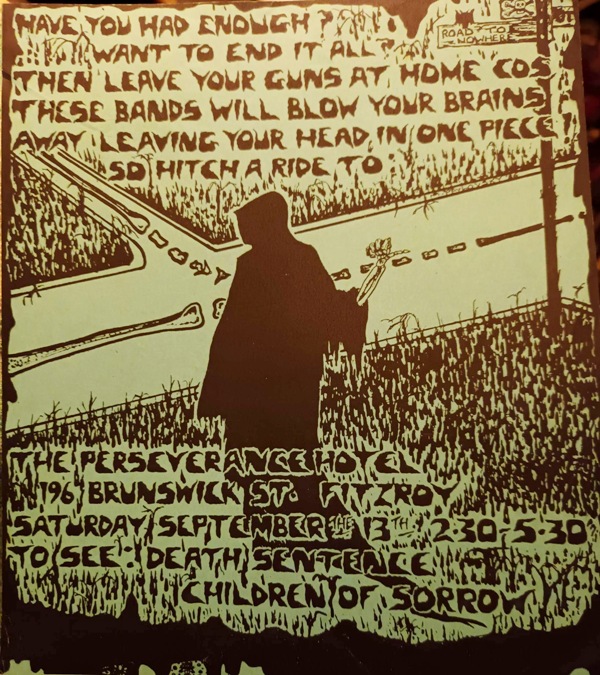 HAVE YOU HAD ENOUGH?
WANT TO END IT ALL?
ROAD TO
NOWHERE
THEN LEAVE YOUR GUNS AT HOME COS
THESE BANDS WILL BLOW YOUR BRAINS
AWAY LEAVING YOUR HEAD IN ONE PIECE!
SO HITCH A RIDE TO
THE PERSEVERANCE HOTEL
196 BRUNSWICK ST. FITZROY
SATURDAY SEPTEMBER THE 13TH 2·30-5·30
TO SEE: DEATH SENTENCE
CHILDREN OF SORROW